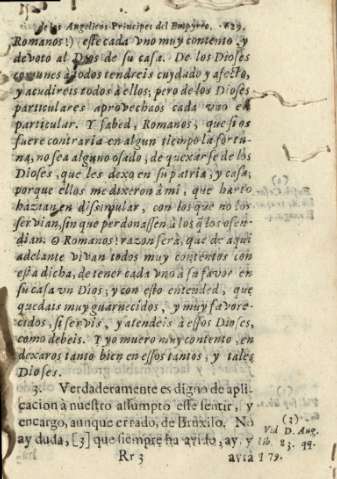 de los Angelicos Principes del Empyreo. 629
Romanos!) estè cada vno muy contento, y
devoto al Dios de su casa. De los Dioses
comunes à todos tendreis cuydado y afecto,
y acudireis todos à ellos; pero de los Dioses
particulares aprovechaos cada vno en
particular. Y sabed, Romanos, que si os
fuere contraria en algun tiempo la fortu-
na, no sea alguno osado, de quexarse de los
Dioses, que les dexo en su patria, y casa;
porque ellos me dixeron à mi, que harto
hazian en disimular, con los que no los
servian, sin que perdonassen à los q̃ los ofen-
dian. O Romanos! razon serà, que de aqui
adelante vivan todos muy contentos con
esta dicha, de tener cada vno à su favor en
su casa vn Dios; y con esto entended, que
quedais muy guarnecidos, y muy favore-
cidos, si servis, y atendeis à essos Dioses,
como debeis. Y yo muero muy contento, en
dexaros tanto bien en essos tantos, y tales
Dioses.
3. Verdaderamente es digno de apli-
cacion à nuestro assumpto este sentir, y
encargo, aunque errado, de Bruxilo. No
ay duda, [3] que siempre ha avido, ay, y
Rr 3
avrà
(3)
Vid D. Aug.
lib. 83. qq.
q 79.